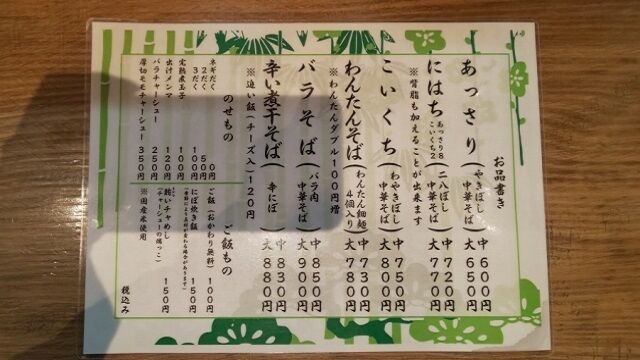 お品書き
あっさり（やきぼし中華そば）中600円 大650円
にはち あっさり8 こいくち2（二八ぼし中華そば）中720円 大770円
※背脂も加えることが出来ます
こいくち（わやきぼし中華そば）中750円 大800円
わんたんそば（わんたん細麺4個入り）中730円 大780円
※わんたんダブル100円増
バラそば（バラ肉中華そば）中850円 大900円
辛い煮干そば（辛にぼ）中830円 大880円
※追い飯（チーズ入）120円
のせもの
ネギだく 0円
2だく 50円
3だく 100円
完熟煮玉子 100円
出汁メンマ 120円
バラチャーシュー 250円
厚切モモチャーシュー 350円
ご飯もの
ご飯（おかわり無料）100円
にぼ炊き飯 150円
（季節により具材が変わる場合があります）
賄いチャめし 150円
（チャーシューの端っこ）
※国産米使用
税込み